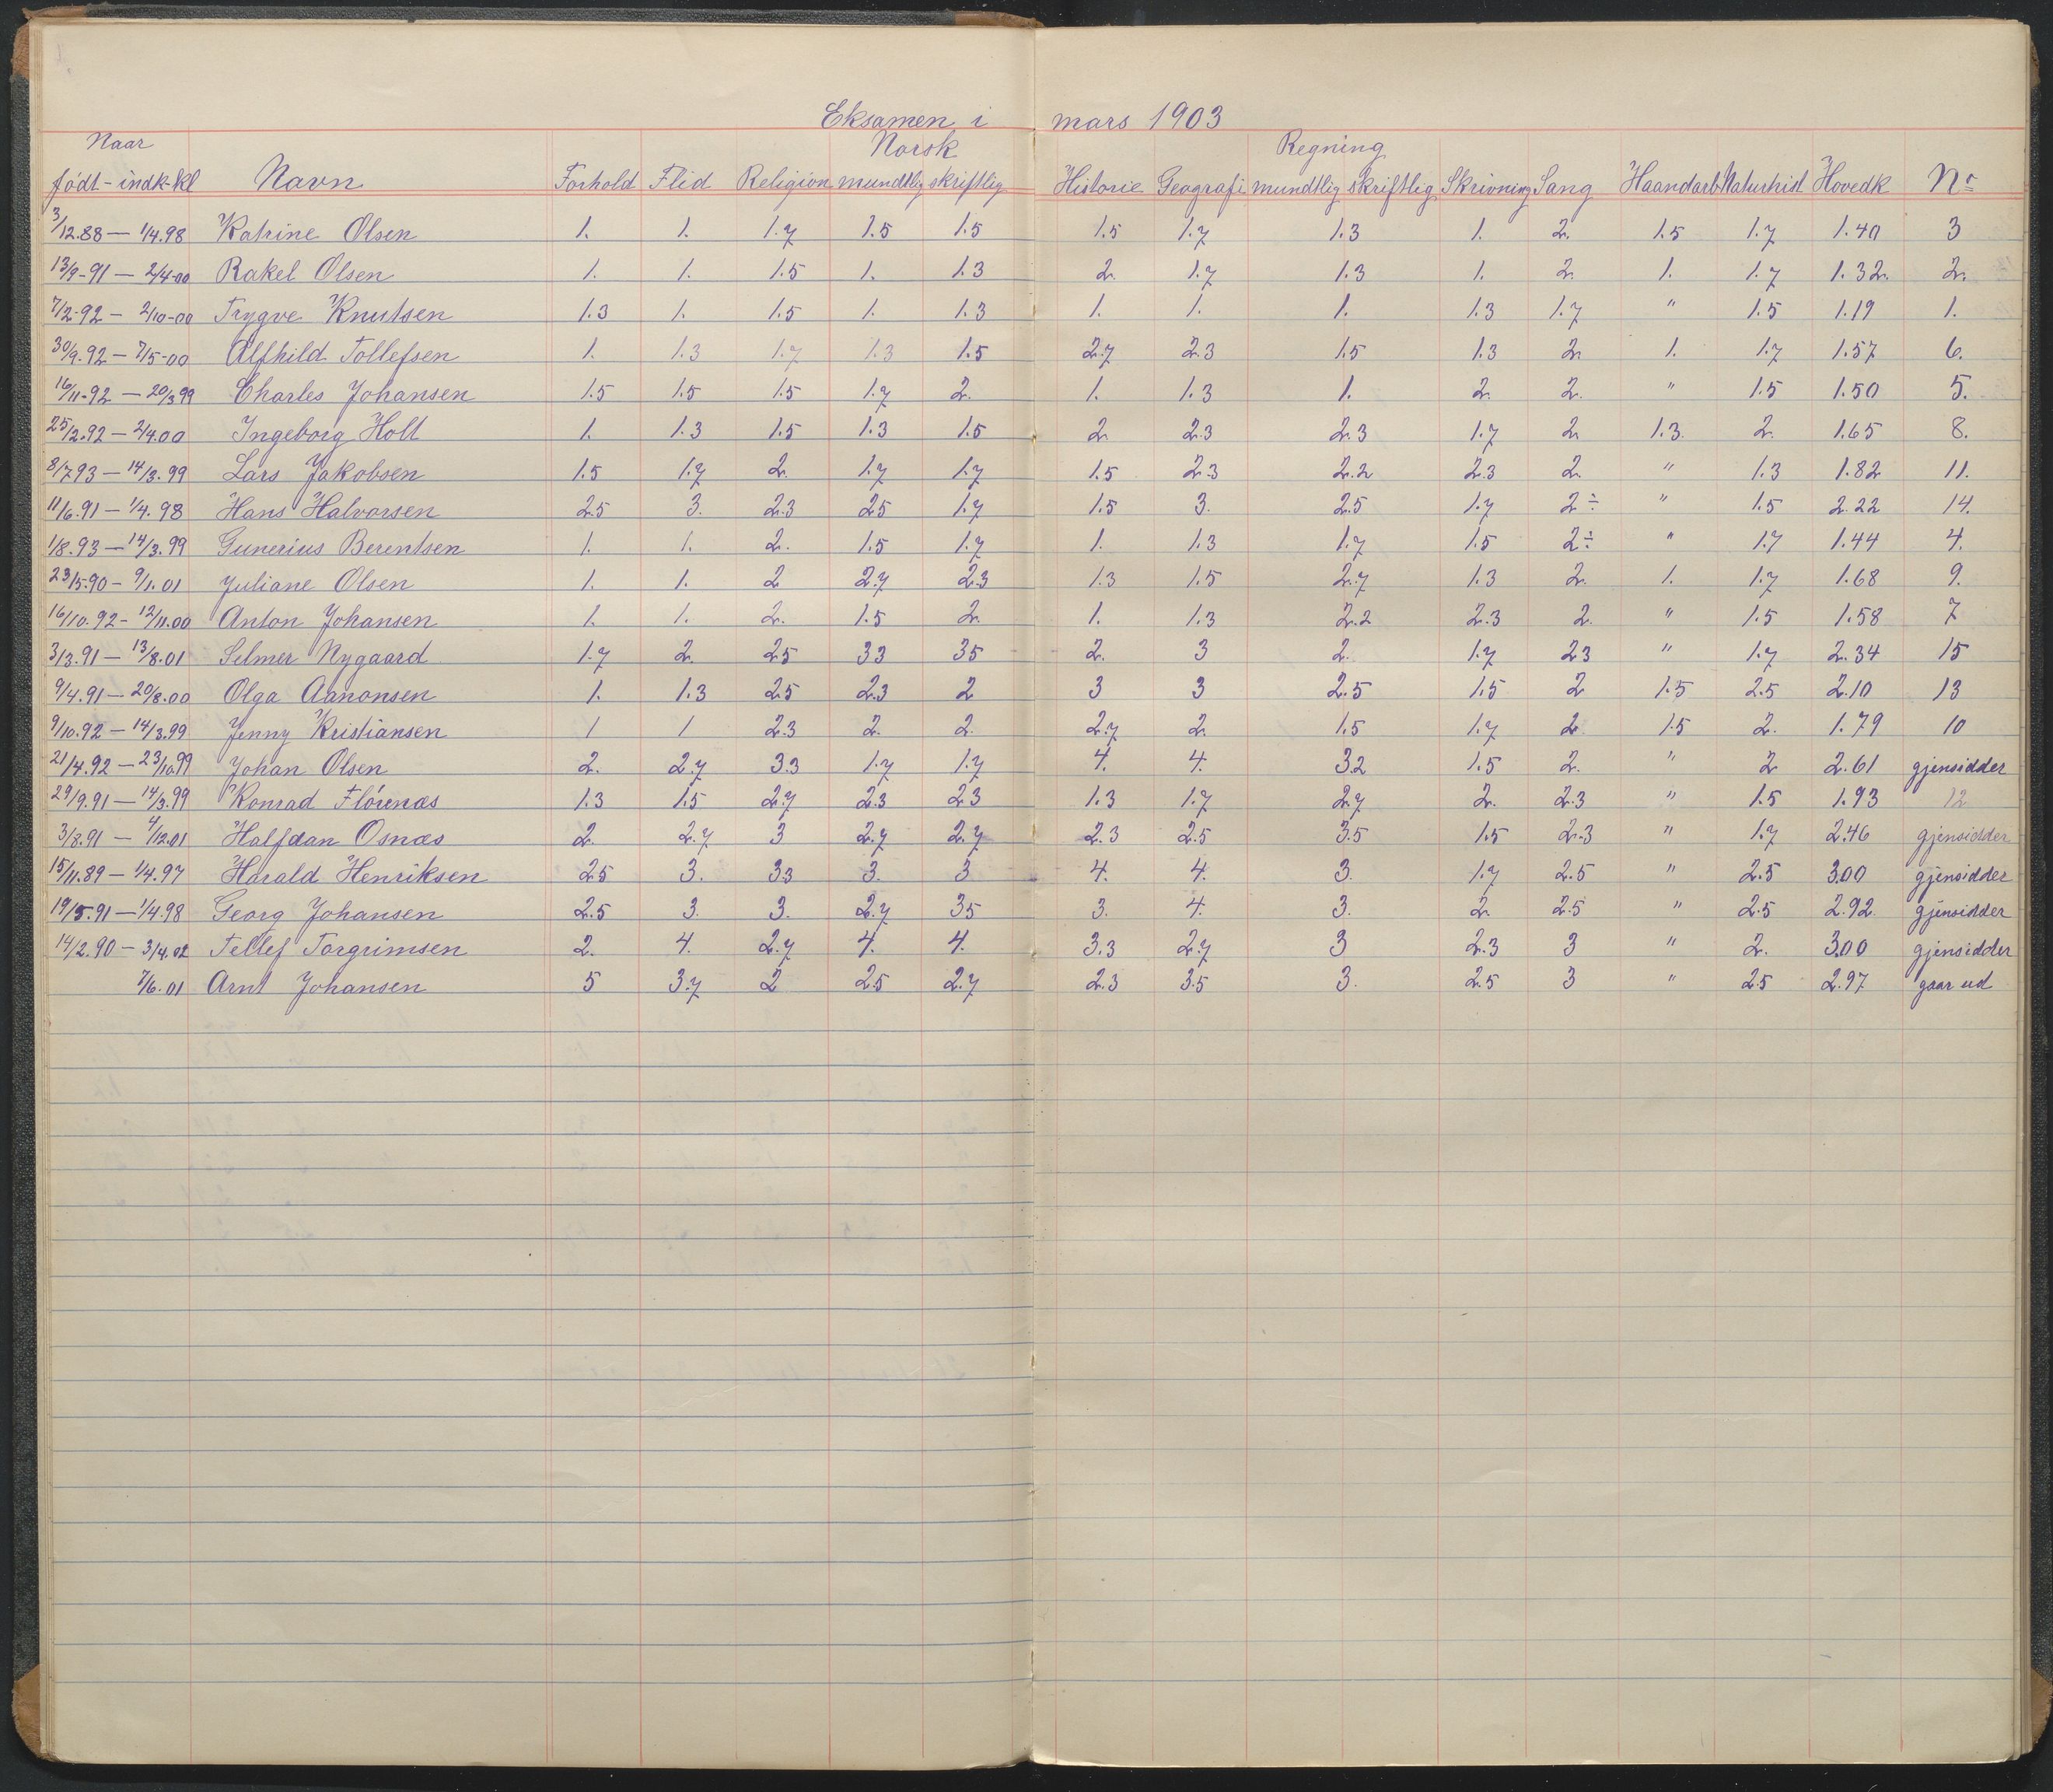 Eksamen i mars 1903
Naar Norsk Regning
födt - indk-kl Navn Forhold Flid Religion mundtlig skriftlig Historie Geografi mundtlig skriftlig Skrivning Sang Haandarb Naturhist Hovedk No
3/12.88 — 1/4.98 Katrine Olsen 1. 1. 1.7 1.5 1.5 1.5 1.7 1.3 1. 2. 1.5 1.7 1.40 3
13/9-91 — 2/4-00 Rakel Olsen 1. 1. 1.5 1. 1.3 2. 1.7 1.3 1. 2. 1. 1.7 1.32. 2.
7/2-92 — 2/10-00 Trygve Knutsen 1.3 1. 1.5 1. 1.3 1. 1. 1. 1.3 1.7 " 1.5 1.19 1.
30/9.92 — 7/5-00 Alfhild Tollefsen 1. 1.3 1.7 1.3 1.5 2.7 2.3 1.5 1.3 2. 1. 1.7 1.57 6.
16/11-92 — 20/3.99 Charles Johansen 1.5 1.5 1.5 1.7 2. 1. 1.3 1. 2. 2. " 1.5 1.50 5.
25/2.92 — 2/4.00 Ingeborg Holt 1. 1.3 1.5 1.3 1.5 2. 2.3 2.3 1.7 2. 1.3. 2. 1.65 8.
8/7.93 — 14/3.99 Lars Jakobsen 1.5 1.7 2. 1.7 1.7 1.5 2.3 2.2 2.3 2. " 1.3 1.82 11.
11/6.91 — 1/4.98 Hans Halvorsen 2.5 3. 2.3 2.5 1.7 1.5 3. 2.5 1.7 2÷ " 1.5 2.22 14.
1/8.93 — 14/3.99 Gunerius Berentsen 1. 1. 2. 1.5 1.7 1. 1.3 1.7 1.5 2÷ " 1.7 1.44 4.
23/5.90 — 9/1.01 Juliane Olsen 1. 1. 2 2.7 2.3 1.3 1.5 2.7 1.3 2. 1. 1.7 1.68 9.
16/10.92 - 12/11.00 Anton Johansen 1. 1. 2. 1.5 2. 1. 1.3 2.2 2.3 2. " 1.5 1.58 7
3/3.91 — 13/8.01 Selmer Nygaard 1.7 2. 2.5 3.3 3.5 2. 3 2. 1.7 2.3 " 1.7 2.34 15
9/4.91 — 20/8.00 Olga Aanonsen 1. 1.3 2.5 2.3 2 3 3 2.5 1.5 2 1.5 2.5 2.10 13
9/10.92 — 14/3.99 Jenny Kristiansen 1 1 2.3 2. 2. 2.7 2. 1.5 1.7 2 1.5 2. 1.79 10
21/4.92 — 23/10.99 Johan Olsen 2. 2.7 3.3 1.7 1.7 4. 4. 3.2 1.5 2. " 2 2.61 gjensidder
29/9.91 — 14/3.99 Konrad Flörenæs 1.3 1.5 2.7 2.3 2.3 1.3 1.7 2.7 2. 2.3 " 1.5 1.93 12
3/8.91 — 4/12.01 Halfdan Osnæs 2. 2.7 3 2.7 2.7 2.3 2.5 3.5 1.5 2.3 " 1.7 2.46 gjensidder
15/11.89 — 1/4.97 Harald Henriksen 2.5 3. 3.3 3. 3 4. 4. 3. 1.7 2.5 " 2.5 3.00 gjensidder
19/5.91 — 1/4.98 Georg Johansen 2.5 3. 3. 2.7 3.5 3. 4. 3. 2. 2.5 " 2.5 2.92. gjensidder
14/2.90 — 3/4.02 Tellef Torgrimsen 2. 4. 2.7 4. 4. 3.3 2.7 3 2.3 3 " 2. 3.00 gjensidder
7/6.01 Arnt Johansen 5 3.7 2 2.5 2.7 2.3 3.5 3. 2.5 3 " 2.5 2.97. gaar ud